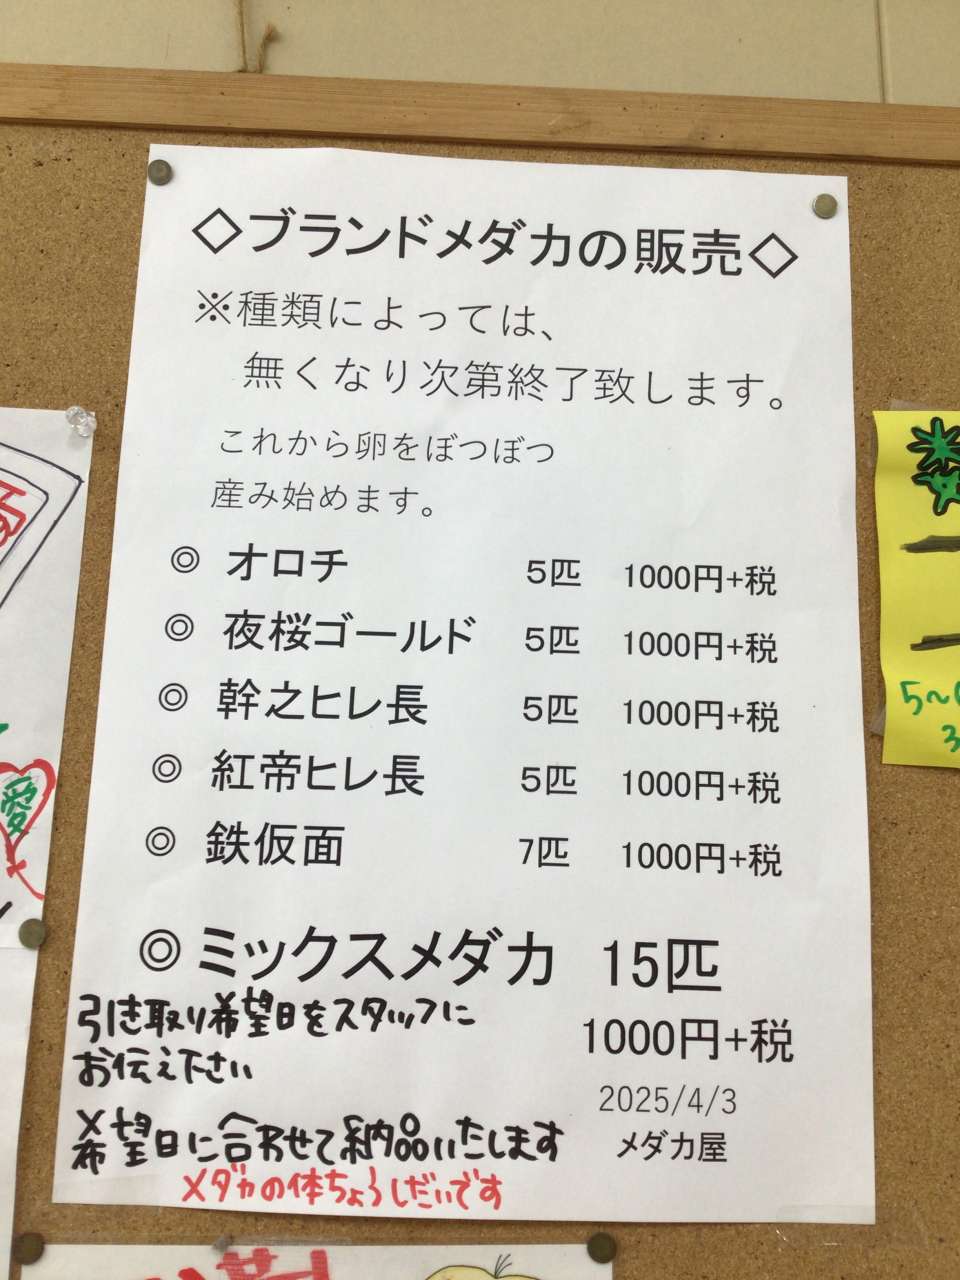 ◇ブランドメダカの販売◇
※種類によっては、
無くなり次第終了致します。
これから卵をぼつぼつ
産み始めます。
◎ オロチ 5匹 1000円+税
◎ 夜桜ゴールド 5匹 1000円+税
◎ 幹之ヒレ長 5匹 1000円+税
◎ 紅帝ヒレ長 5匹 1000円+税
◎ 鉄仮面 7匹 1000円+税
◎ミックスメダカ 15匹
1000円+税
引き取り希望日をスタッフに
お伝え下さい
2025/4/3
メダカ屋
希望日に合わせて納品いたします
メダカの体ちょうしだいです
愛
5〜
3